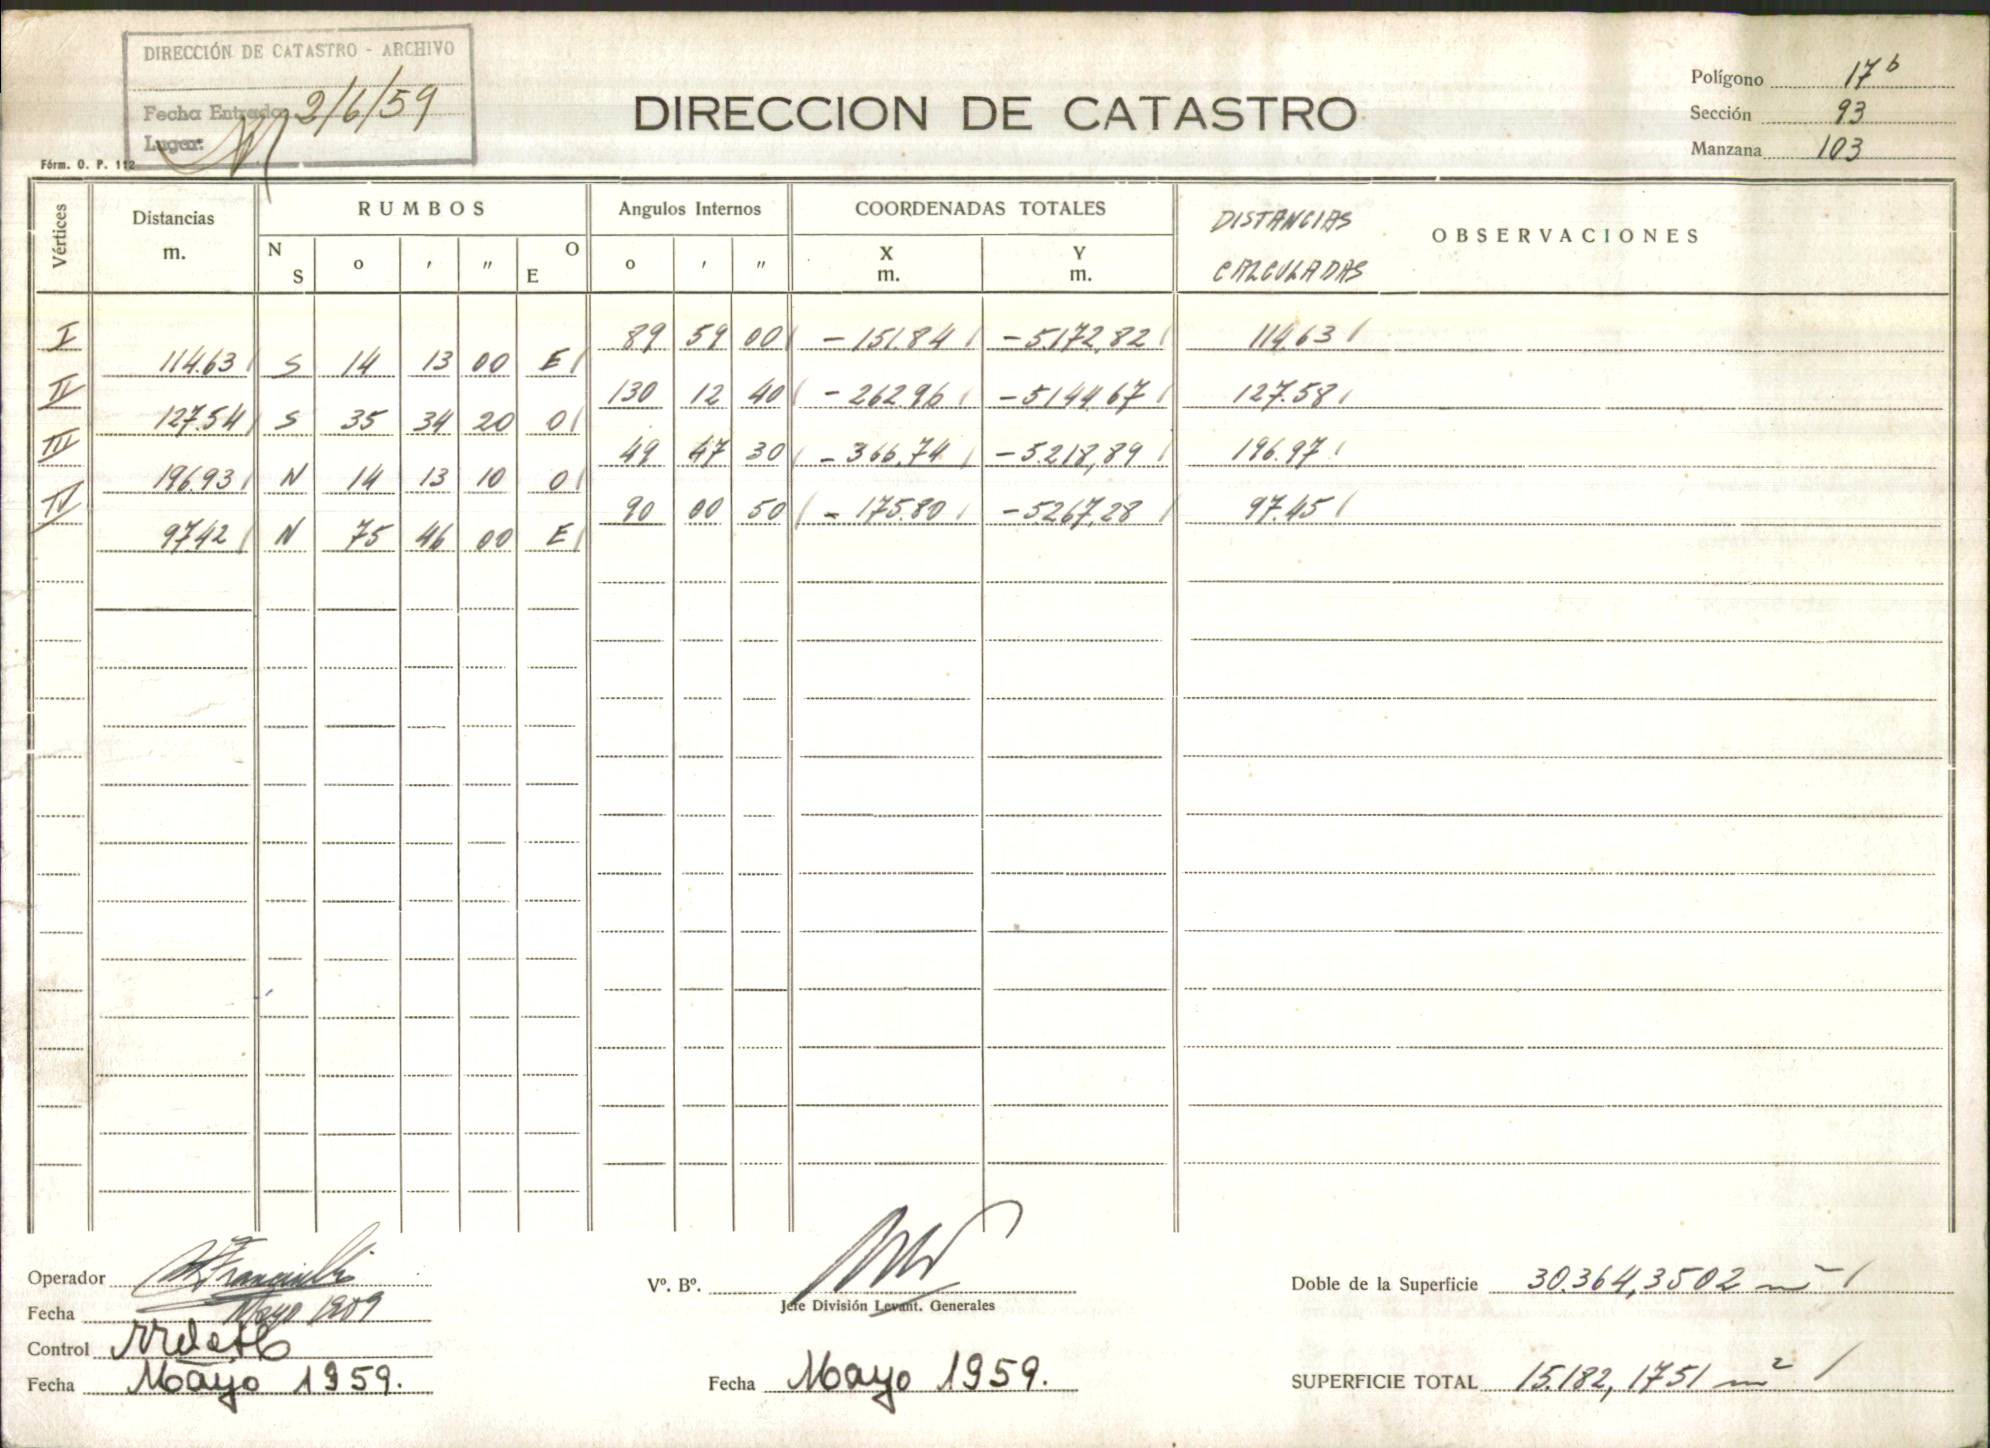 DIRECCIÓN DE CATASTRO - ARCHIVO
Fecha Entrada: 2/6/59
Lugar:
Fórm. O. P. 112
DIRECCION DE CATASTRO
Polígono 17b
Sección 93
Manzana 103
Vértices Distancias m. RUMBOS N S o ' " O E Angulos Internos o ' " COORDENADAS TOTALES X m. Y m. DISTANCIAS CALCULADAS OBSERVACIONES
I 89 59 00 -151.84 -5.172,82 114,63
114.63 S 14 13 00 E
II 130 12 40 -262.96 -5.144,67 127.58
127.54 S 35 34 20 O
III 49 47 30 -366,74 -5.218,89 196.97
196.93 N 14 13 10 O
IV 90 00 50 -175.80 -5.267,28 97.45
97.42 N 75 46 00 E
Operador
Fecha Mayo 1959
Control
Fecha Mayo 1959.
Vº. Bº.
Jefe División Levant. Generales
Fecha Mayo 1959.
Doble de la Superficie 30.364,3502 m²
SUPERFICIE TOTAL 15.182,1751 m²